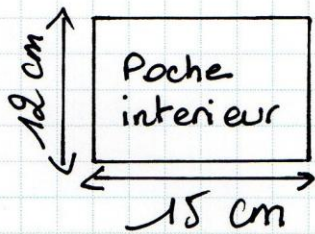 12 cm
Poche
interieur
15 cm